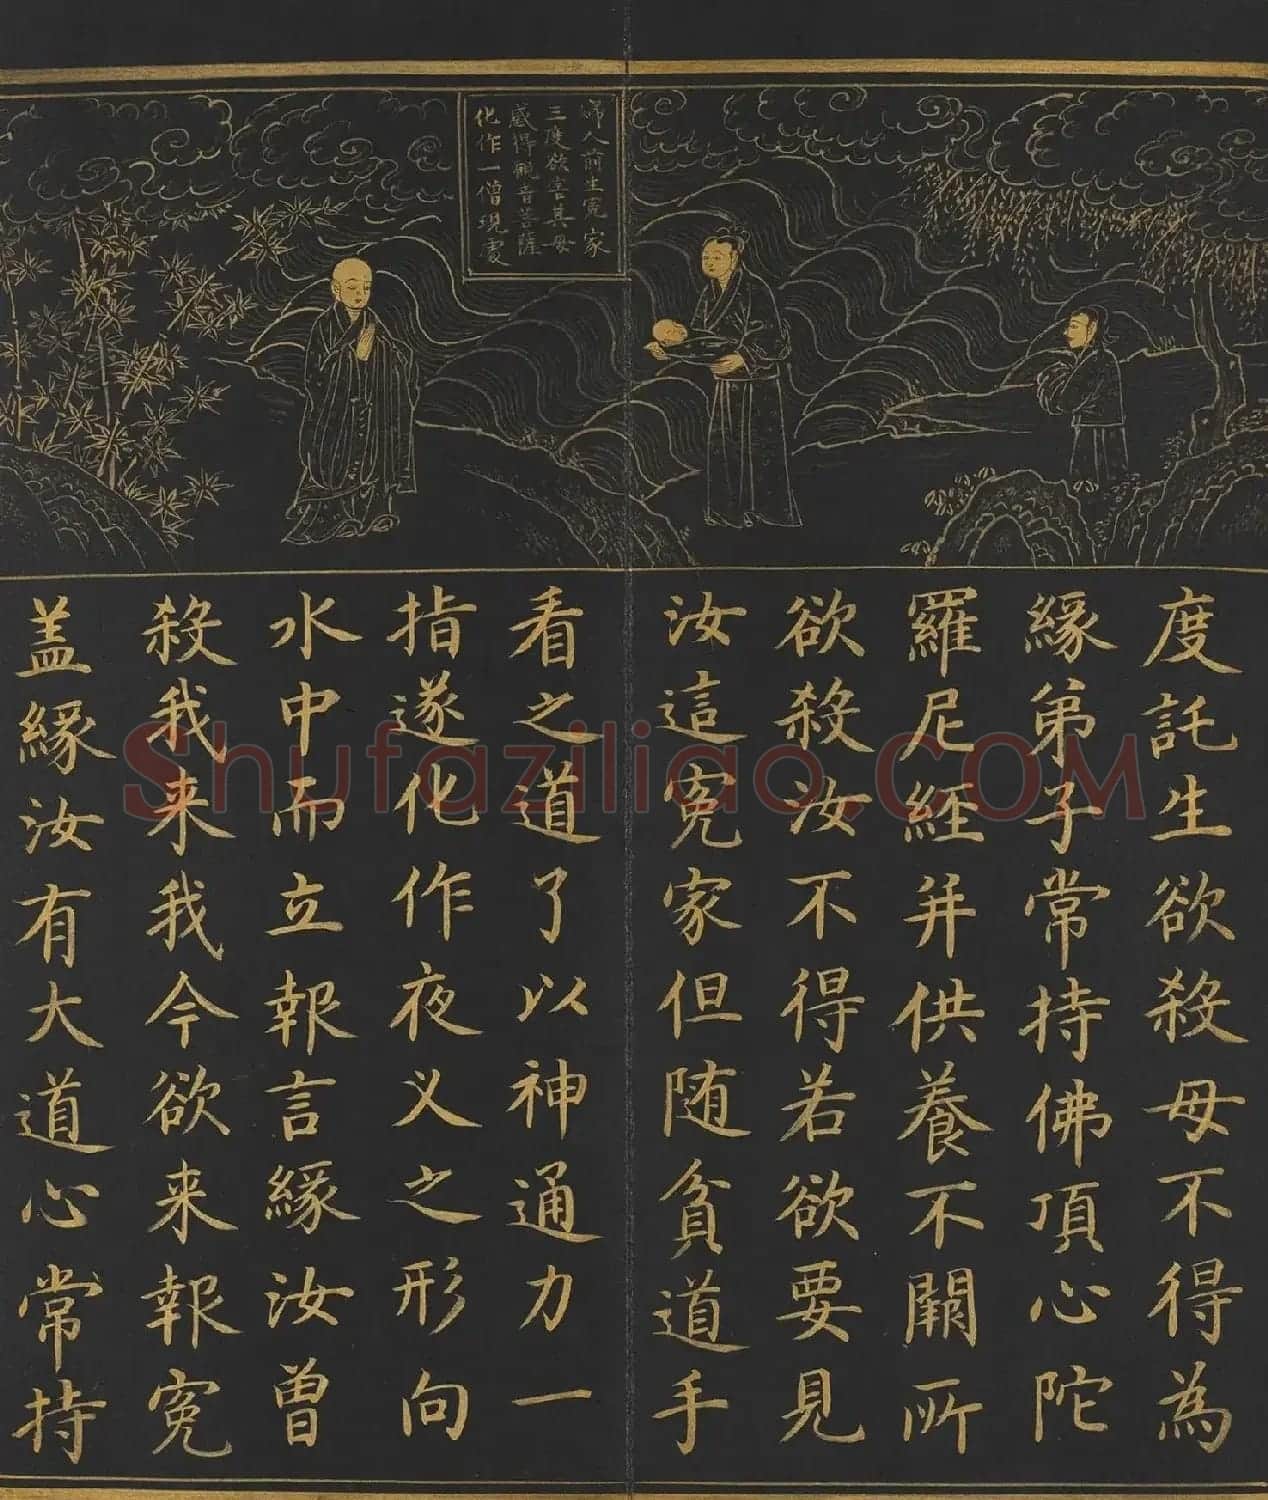 婦人前生冤家
三度欲害其母
感得觀音菩薩
化作一僧現處
度託生欲殺母不得為
緣弟子常持佛頂心陀
羅尼經并供養不闕所
欲殺汝不得若欲要見
汝這冤家但随貧道手
看之道了以神通力一
指遂化作夜义之形向
水中而立報言緣汝曾
殺我来我今欲来報冤
盖緣汝有大道心常持
Shufaziliao.COM